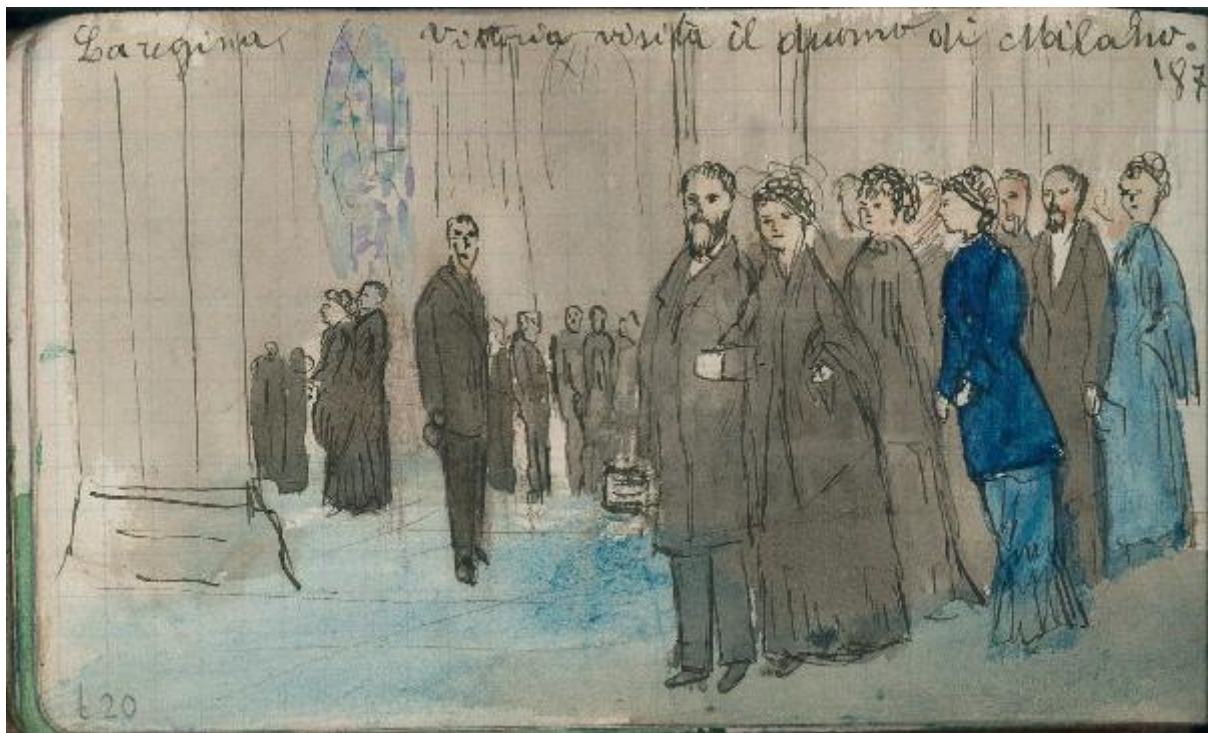 La regina Vittoria visita il duomo di Milano.
187
t 20